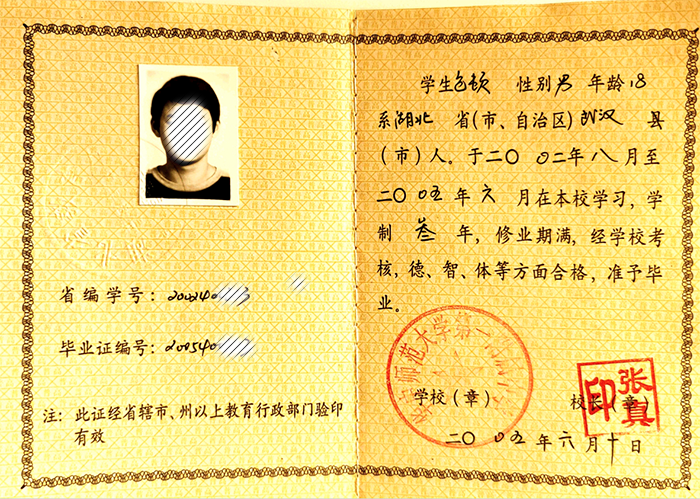 省编学号：200240
毕业证编号：200540
注：此证经省辖市、州以上教育行政部门验印
有效
学生 性别男 年龄18
系湖北省(市、自治区)武汉县
(市)人。于二〇〇二年八月至
二〇〇五年六月在本校学习，学
制叁年，修业期满，经学校考
核，德、智、体等方面合格，准予毕
业。
师范大学第一
学校(章) 校长(章)
张真印
二〇〇五年六月十日